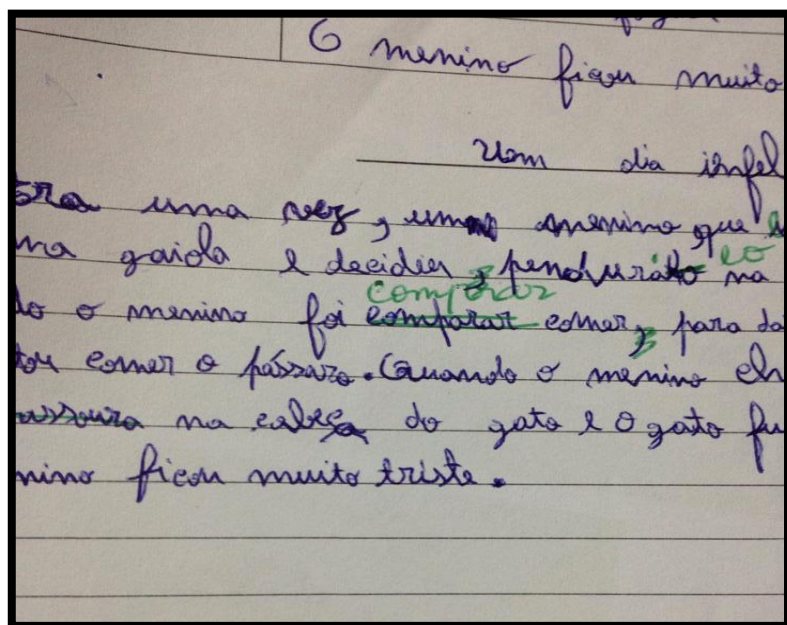 O menino ficou muito
Um dia infel
Era uma vez, um menino que
na gaiola e decidiu, pendurá lo na
comprar
do o menino foi comparar comer, para da
tou comer o pássaro. Quando o menino ch
assoura na cabeça do gato e o gato fu
nino ficou muito triste.